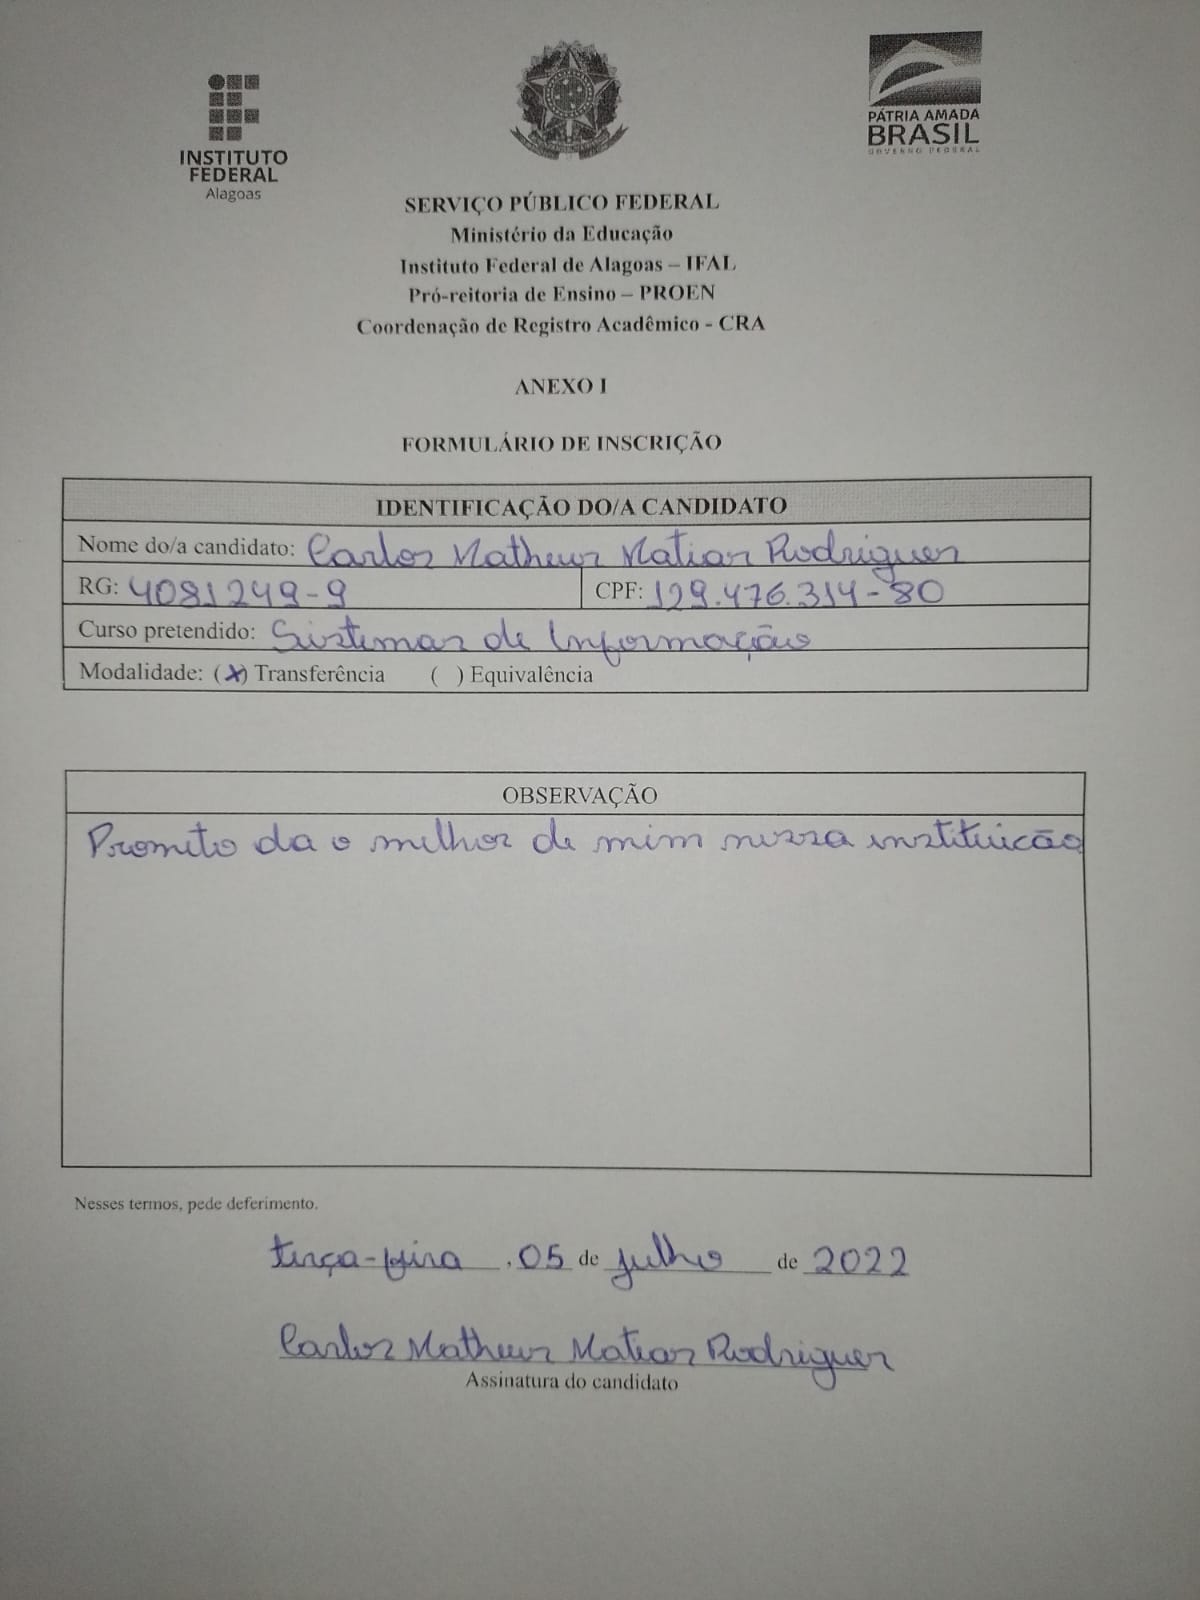 INSTITUTO
FEDERAL
Alagoas
PÁTRIA AMADA
BRASIL
GOVERNO FEDERAL
SERVIÇO PÚBLICO FEDERAL
Ministério da Educação
Instituto Federal de Alagoas – IFAL
Pró-reitoria de Ensino – PROEN
Coordenação de Registro Acadêmico - CRA
ANEXO I
FORMULÁRIO DE INSCRIÇÃO
IDENTIFICAÇÃO DO/A CANDIDATO
Nome do/a candidato: Carlos Matheus Matias Rodrigues
RG: 4081249-9 CPF: 129.476.314-80
Curso pretendido: Sistemas de Informação
Modalidade: (X) Transferência ( ) Equivalência
OBSERVAÇÃO
Prometo da o melhor de mim nessa instituicão
Nesses termos, pede deferimento.
terça-feira , 05 de julho de 2022
Carlos Matheus Matias Rodrigues
Assinatura do candidato